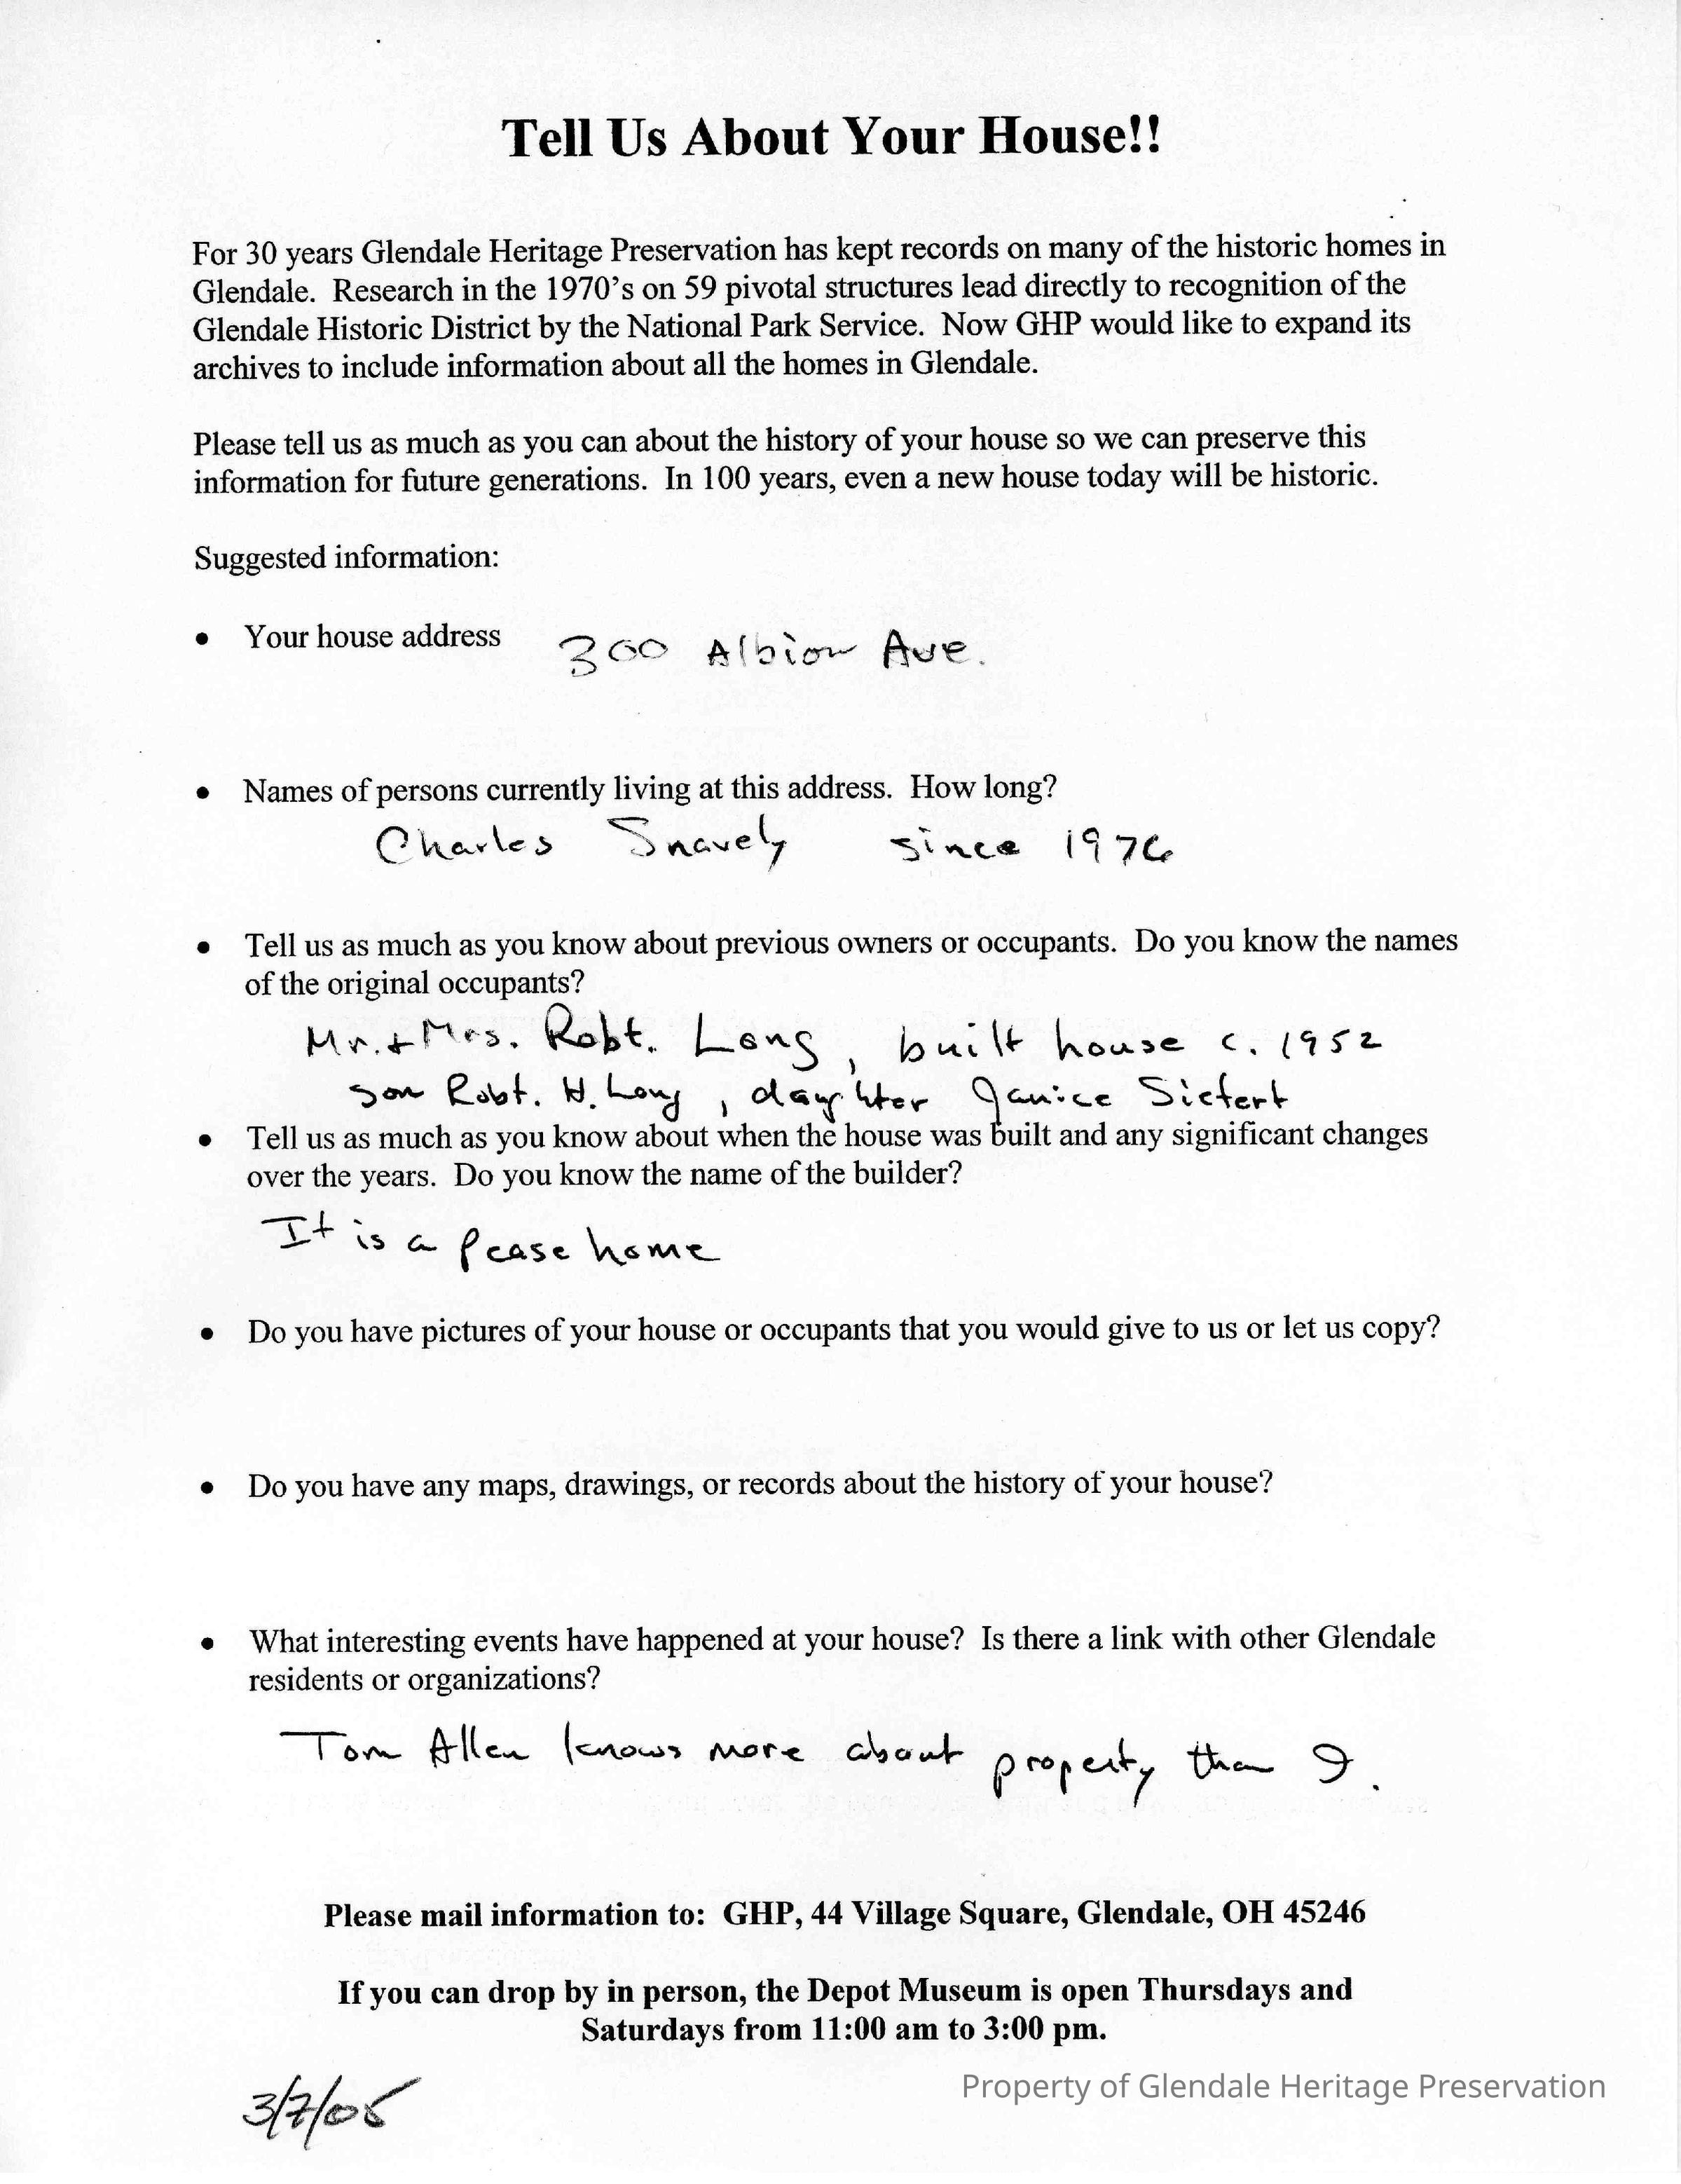 Tell Us About Your House!!
For 30 years Glendale Heritage Preservation has kept records on many of the historic homes in
Glendale. Research in the 1970's on 59 pivotal structures lead directly to recognition of the
Glendale Historic District by the National Park Service. Now GHP would like to expand its
archives to include information about all the homes in Glendale.
Please tell us as much as you can about the history of your house so we can preserve this
information for future generations. In 100 years, even a new house today will be historic.
Suggested information:
• Your house address 300 Albion Ave.
• Names of persons currently living at this address. How long?
Charles Snavely since 1976
• Tell us as much as you know about previous owners or occupants. Do you know the names
of the original occupants?
Mr. + Mrs. Robt. Long, built house c. 1952
son Robt. H. Long, daughter Janice Siefert
• Tell us as much as you know about when the house was built and any significant changes
over the years. Do you know the name of the builder?
It is a Pease home
• Do you have pictures of your house or occupants that you would give to us or let us copy?
• Do you have any maps, drawings, or records about the history of your house?
• What interesting events have happened at your house? Is there a link with other Glendale
residents or organizations?
Tom Allen knows more about property than I.
Please mail information to: GHP, 44 Village Square, Glendale, OH 45246
If you can drop by in person, the Depot Museum is open Thursdays and
Saturdays from 11:00 am to 3:00 pm.
Property of Glendale Heritage Preservation
3/7/05